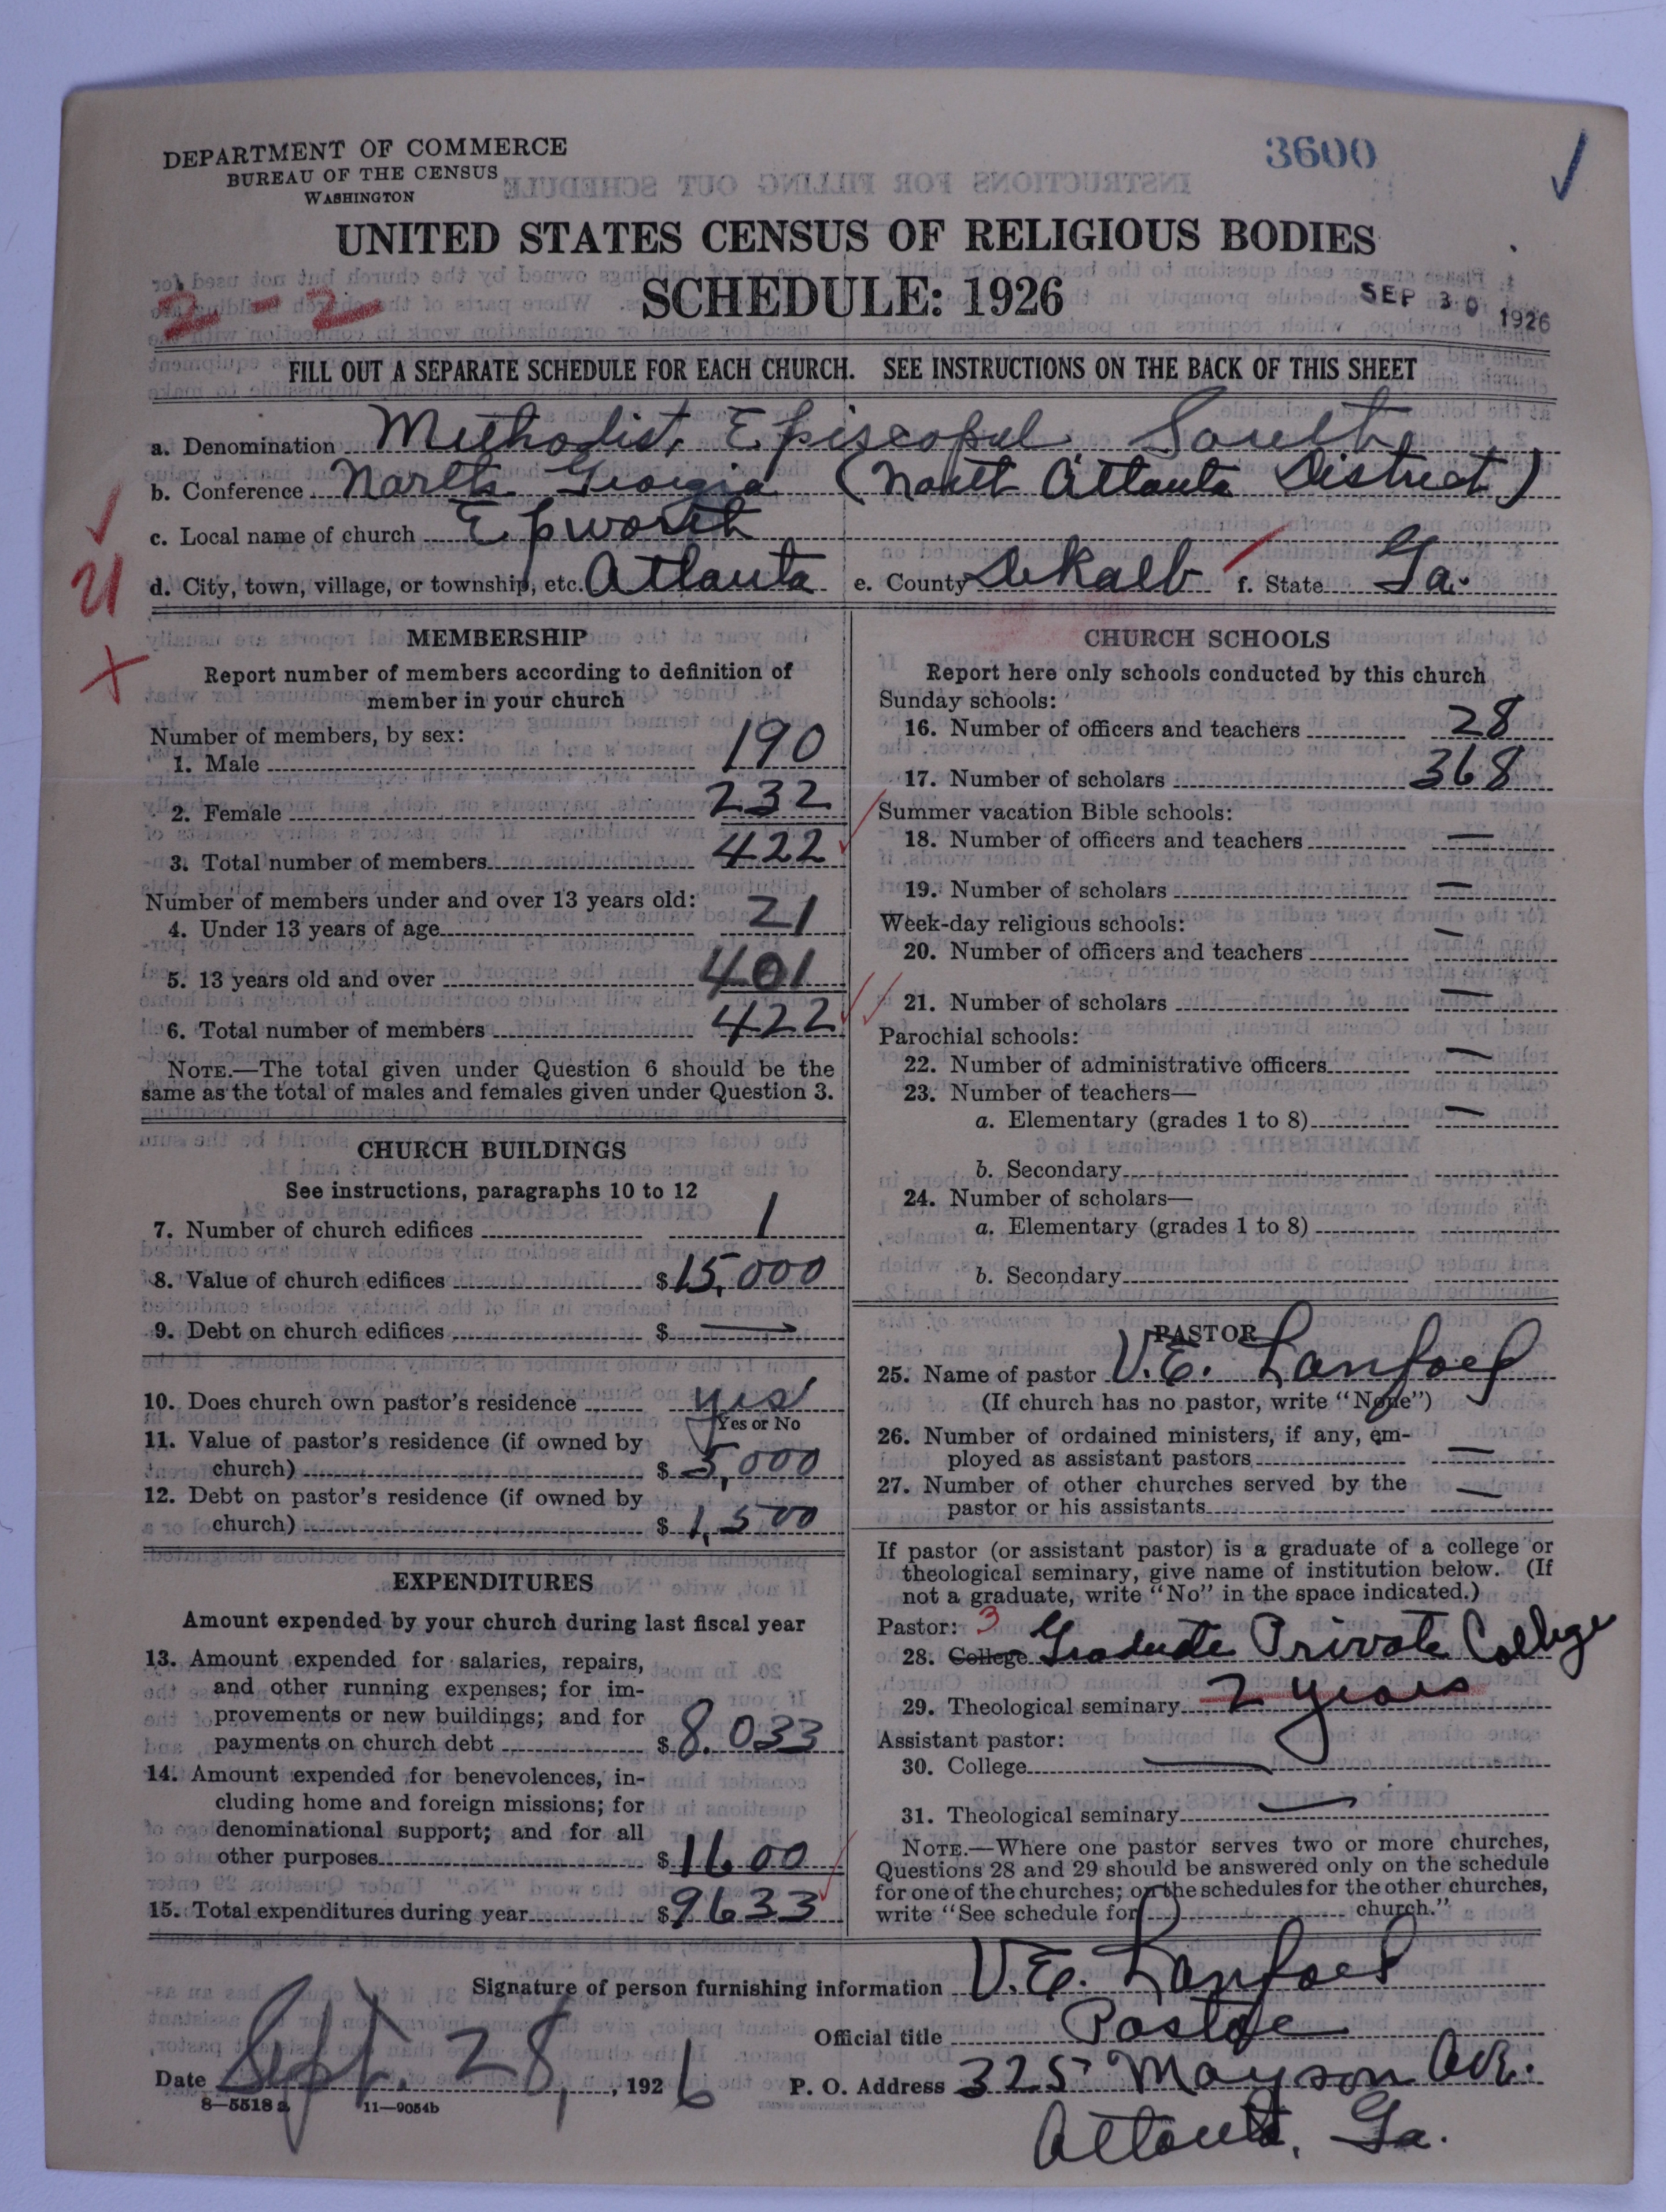 DEPARTMENT OF COMMERCE
BUREAU OF THE CENSUS
WASHINGTON
3600
UNITED STATES CENSUS OF RELIGIOUS BODIES
SCHEDULE: 1926
2-2
SEP 30 1926
FILL OUT A SEPARATE SCHEDULE FOR EACH CHURCH. SEE INSTRUCTIONS ON THE BACK OF THIS SHEET
a. Denomination Methodist Episcopal South
b. Conference North Georgia (North Atlanta District)
c. Local name of church Epworth
d. City, town, village, or township, etc. Atlanta e. County DeKalb f. State Ga.
MEMBERSHIP
Report number of members according to definition of
member in your church
Number of members, by sex:
1. Male 190
2. Female 232
3. Total number of members 422
Number of members under and over 13 years old:
4. Under 13 years of age 21
5. 13 years old and over 401
6. Total number of members 422
NOTE.—The total given under Question 6 should be the
same as the total of males and females given under Question 3.
CHURCH BUILDINGS
See instructions, paragraphs 10 to 12
7. Number of church edifices 1
8. Value of church edifices $15,000
9. Debt on church edifices $ —
10. Does church own pastor's residence yes
Yes or No
11. Value of pastor's residence (if owned by
church) $ 5,000
12. Debt on pastor's residence (if owned by
church) $ 1,500
EXPENDITURES
Amount expended by your church during last fiscal year
13. Amount expended for salaries, repairs,
and other running expenses; for im-
provements or new buildings; and for
payments on church debt $ 8.033
14. Amount expended for benevolences, in-
cluding home and foreign missions; for
denominational support; and for all
other purposes $ 1600
15. Total expenditures during year $ 9633
CHURCH SCHOOLS
Report here only schools conducted by this church
Sunday schools:
16. Number of officers and teachers 28
17. Number of scholars 368
Summer vacation Bible schools:
18. Number of officers and teachers —
19. Number of scholars —
Week-day religious schools:
20. Number of officers and teachers —
21. Number of scholars —
Parochial schools:
22. Number of administrative officers —
23. Number of teachers—
a. Elementary (grades 1 to 8) —
b. Secondary
24. Number of scholars—
a. Elementary (grades 1 to 8)
b. Secondary
PASTOR
25. Name of pastor V.E. Lanford
(If church has no pastor, write "None")
26. Number of ordained ministers, if any, em-
ployed as assistant pastors —
27. Number of other churches served by the
pastor or his assistants —
If pastor (or assistant pastor) is a graduate of a college or
theological seminary, give name of institution below. (If
not a graduate, write "No" in the space indicated.)
Pastor: 3
28. College Graduate Private College
29. Theological seminary 2 years
Assistant pastor:
30. College —
31. Theological seminary —
NOTE.—Where one pastor serves two or more churches,
Questions 28 and 29 should be answered only on the schedule
for one of the churches; on the schedules for the other churches,
write "See schedule for church."
Signature of person furnishing information V.E. Lanford
Official title Pastor
Date Sept. 28, 1926 P. O. Address 325 Mayson Ave.
8—5518a 11—9054b
Atlanta, Ga.